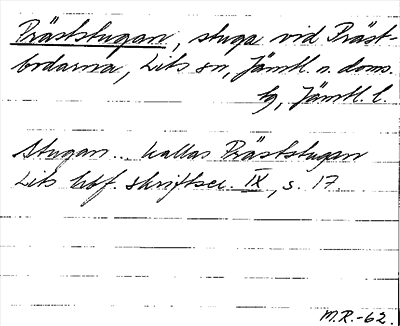 Präststugan, stuga vid Präst-
bodarna, Lits sn, Jämtl. n. doms.
tg, Jämtl. l.
Stugan... kallas Präststugan
Lits hbf. skriftser. IX, s. 17.
M.R.-62.